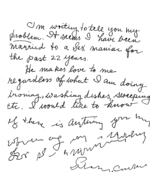 I'm writing to tell you my
problem. It seems I have been
married to a sex maniac for
the past 22 years.
He makes love to me
regardless of what I am doing
ironing, washing dishes, sweeping
etc. I would like to know
if there is anything you